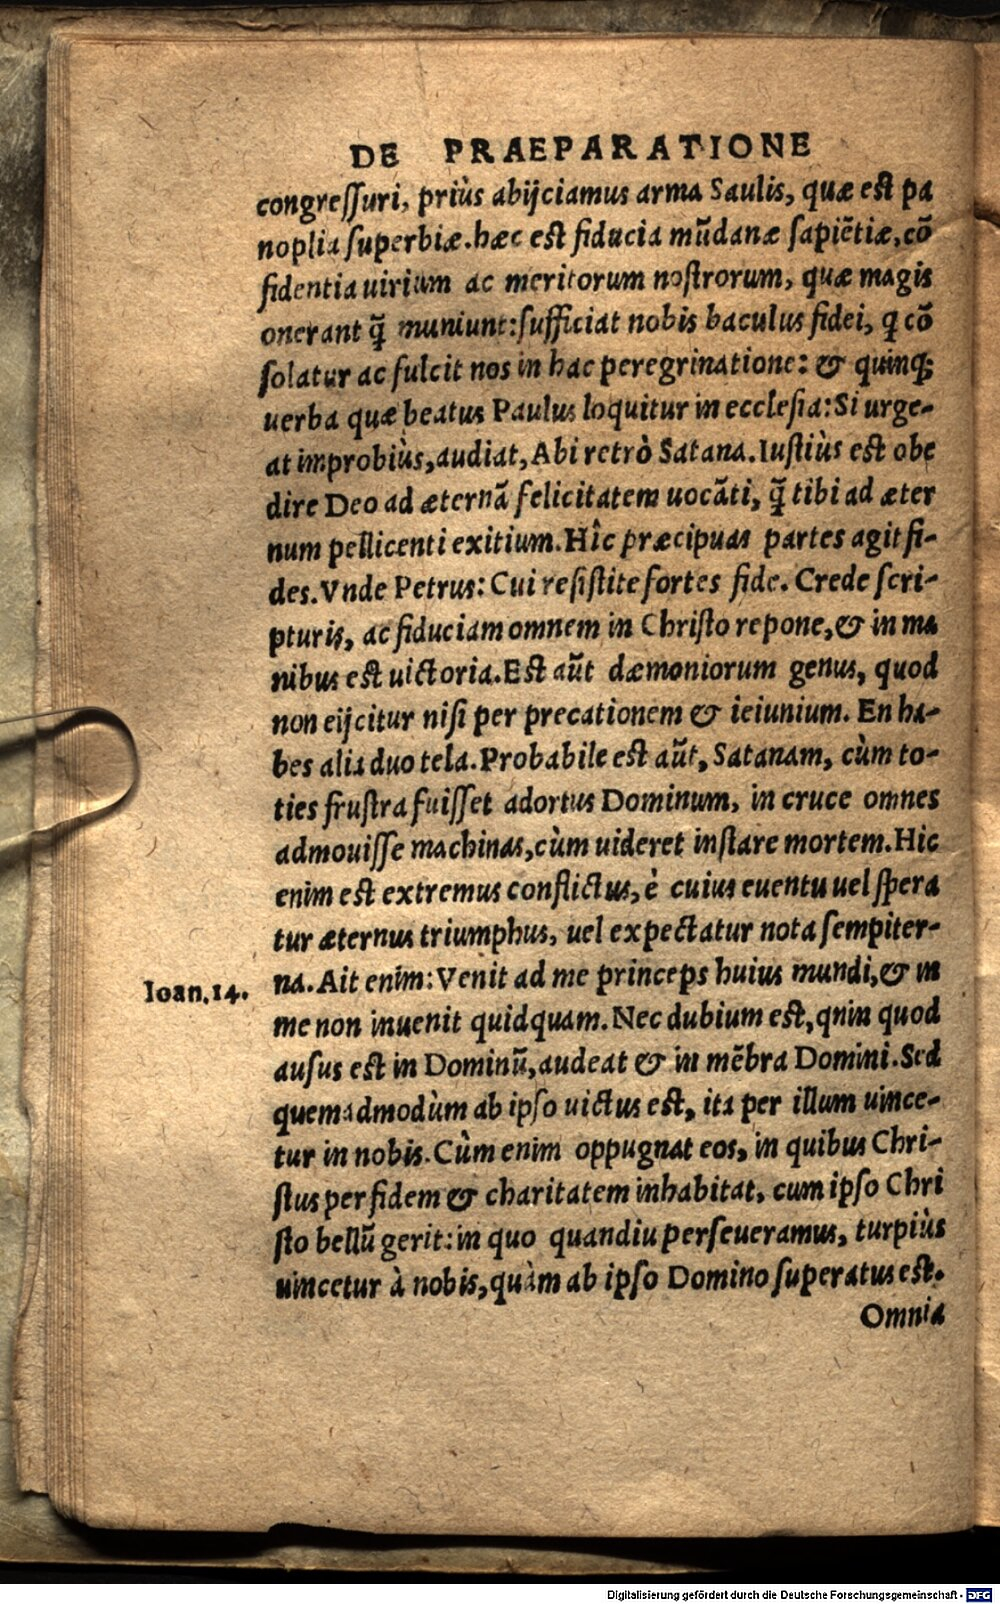 DE PRAEPARATIONE
congreſſuri, priùs abijciamus arma Saulis, quæ est pa
noplia ſuperbiæ. hæc est fiducia mūdanæ ſapiētiæ, cō
fidentia uirium ac meritorum noſtrorum, quæ magis
onerant q̄ muniunt: ſufficiat nobis baculus fidei, q cō
ſolatur ac fulcit nos in hac peregrinatione: & quinq;
uerba quæ beatus Paulus loquitur in eccleſia: Si urge-
at improbiùs, audiat, Abi retrò Satana. Iuſtiùs est obe
dire Deo ad æternā felicitatem uocāti, q̄ tibi ad æter
num pellicenti exitium. Hîc præcipuas partes agit fi-
des. Vnde Petrus: Cui reſiſtite fortes fide. Crede ſcri-
pturis, ac fiduciam omnem in Chriſto repone, & in ma
nibus est uictoria. Est aūt dæmoniorum genus, quod
non eijcitur niſi per precationem & ieiunium. En ha-
bes alia duo tela. Probabile est aūt, Satanam, cùm to-
ties fruſtra fuiſſet adortus Dominum, in cruce omnes
admouiſſe machinas, cùm uideret inſtare mortem. Hic
enim est extremus conflictus, è cuius euentu uel ſpera
tur æternus triumphus, uel expectatur nota ſempiter-
na. Ait enim: Venit ad me princeps huius mundi, & in
Ioan. 14.
me non inuenit quidquam. Nec dubium est, qnin quod
auſus est in Dominū, audeat & in mēbra Domini. Sed
quemadmodùm ab ipſo uictus est, ita per illum uince-
tur in nobis. Cùm enim oppugnat eos, in quibus Chri-
ſtus per fidem & charitatem inhabitat, cum ipſo Chri
ſto bellū gerit: in quo quandiu perſeueramus, turpiùs
uincetur à nobis, quàm ab ipſo Domino ſuperatus est.
Omnia
Digitalisierung gefördert durch die Deutsche Forschungsgemeinschaft - DFG